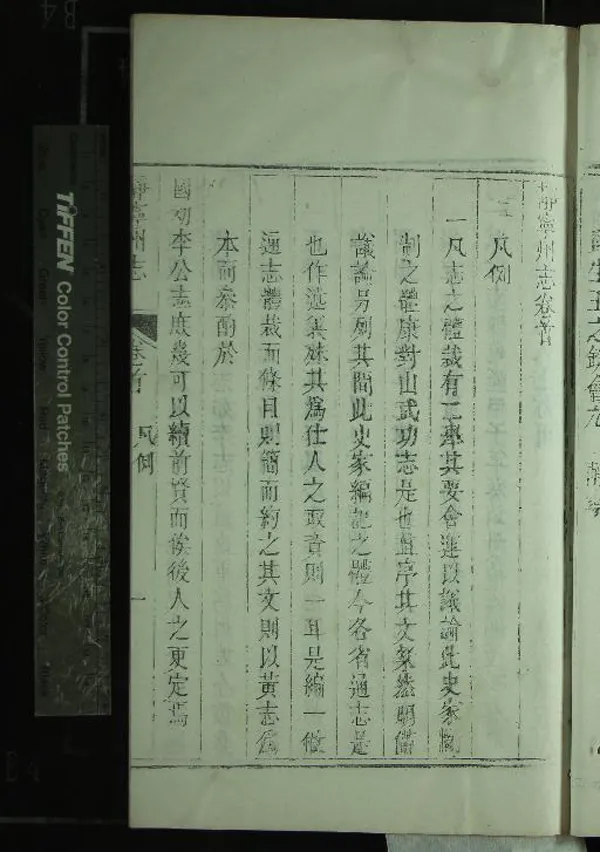 靜寧州志卷首
凡例
一凡志之體裁有二舉其要會運以議論此史家
制之體康對山武功志是也直序其文粲然明備
議論另列其間此史家編記之體今各省通志是
也作述雖殊其為仕人之取資則一耳是編一倣
通志體裁而條目則簡而約之其文則以黃志為
本而泰酌於
國初李公志庶幾可以續前賢而俟後人之更定焉
靜寧州志
卷首
凡例
一
TIFFEN Color Control Patches